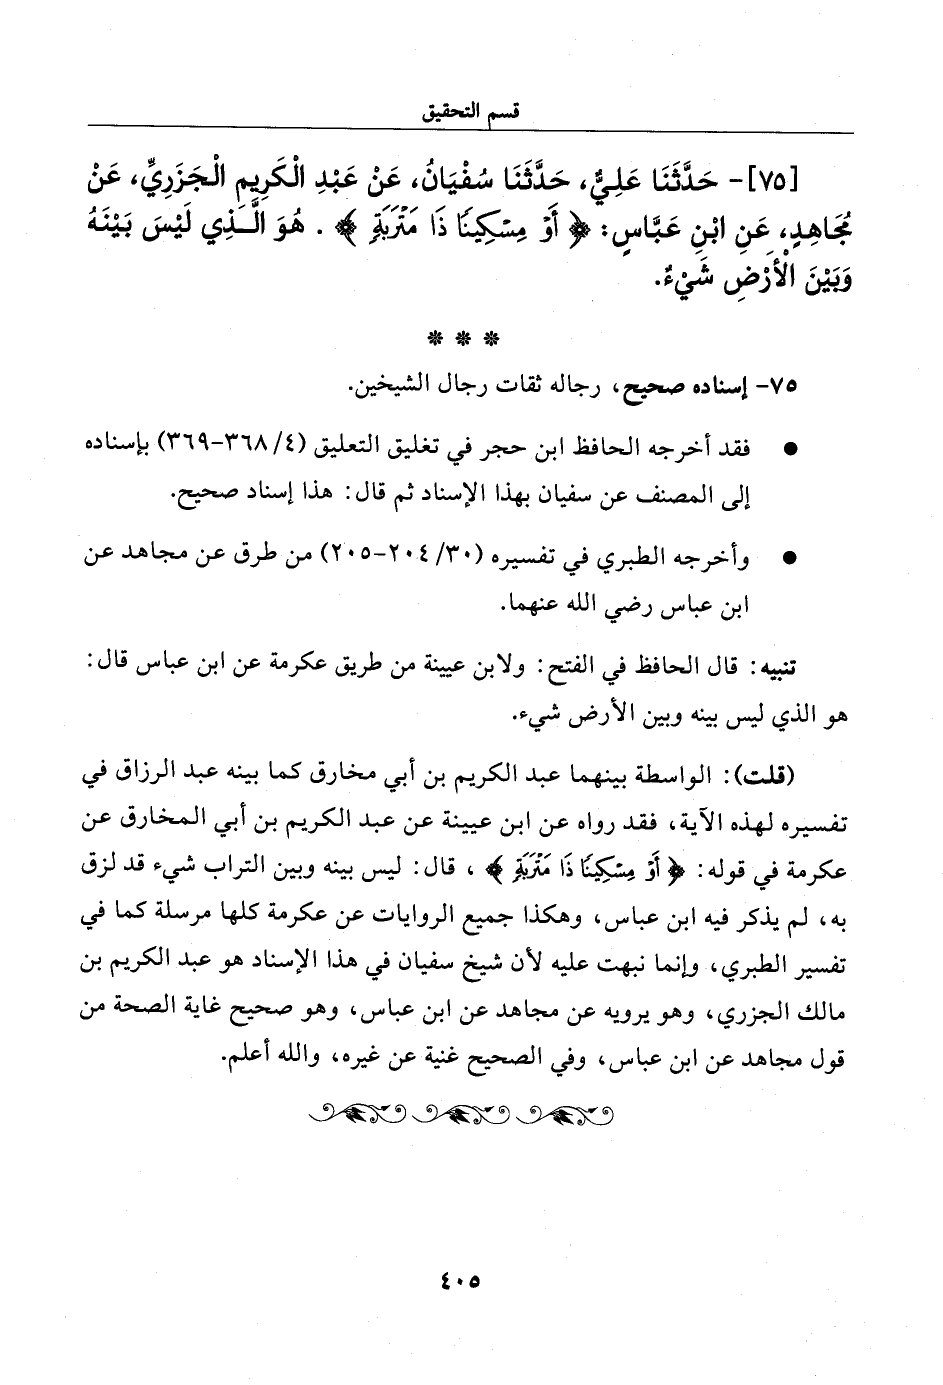 قسم التحقيق
[٧٥]- حَدَّثَنَا عَلِيٌّ، حَدَّثَنَا سُفْيَانُ، عَنْ عَبْدِ الْكَرِيمِ الْجَزَرِيِّ، عَنْ
مُجَاهِدٍ، عَنِ ابْنِ عَبَّاسٍ: ﴿أَوْ مِسْكِينًا ذَا مَتْرَبَةٍ﴾. هُوَ الَّـذِي لَيْسَ بَيْنَهُ
وَبَيْنَ الْأَرْضِ شَيْءٌ.
* * *
٧٥- إسناده صحيح، رجاله ثقات رجال الشيخين.
● فقد أخرجه الحافظ ابن حجر في تغليق التعليق (٤/ ٣٦٨-٣٦٩) بإسناده
إلى المصنف عن سفيان بهذا الإسناد ثم قال: هذا إسناد صحيح.
● وأخرجه الطبري في تفسيره (٣٠/ ٢٠٤-٢٠٥) من طرق عن مجاهد عن
ابن عباس رضي الله عنهما.
تنبيه: قال الحافظ في الفتح: ولابن عيينة من طريق عكرمة عن ابن عباس قال:
هو الذي ليس بينه وبين الأرض شيء.
(قلت): الواسطة بينهما عبد الكريم بن أبي مخارق كما بينه عبد الرزاق في
تفسيره لهذه الآية، فقد رواه عن ابن عيينة عن عبد الكريم بن أبي المخارق عن
عكرمة في قوله: ﴿أَوْ مِسْكِينًا ذَا مَتْرَبَةٍ﴾، قال: ليس بينه وبين التراب شيء قد لزق
به، لم يذكر فيه ابن عباس، وهكذا جميع الروايات عن عكرمة كلها مرسلة كما في
تفسير الطبري، وإنما نبهت عليه لأن شيخ سفيان في هذا الإسناد هو عبد الكريم بن
مالك الجزري، وهو يرويه عن مجاهد عن ابن عباس، وهو صحيح غاية الصحة من
قول مجاهد عن ابن عباس، وفي الصحيح غنية عن غيره، والله أعلم.
٤٠٥